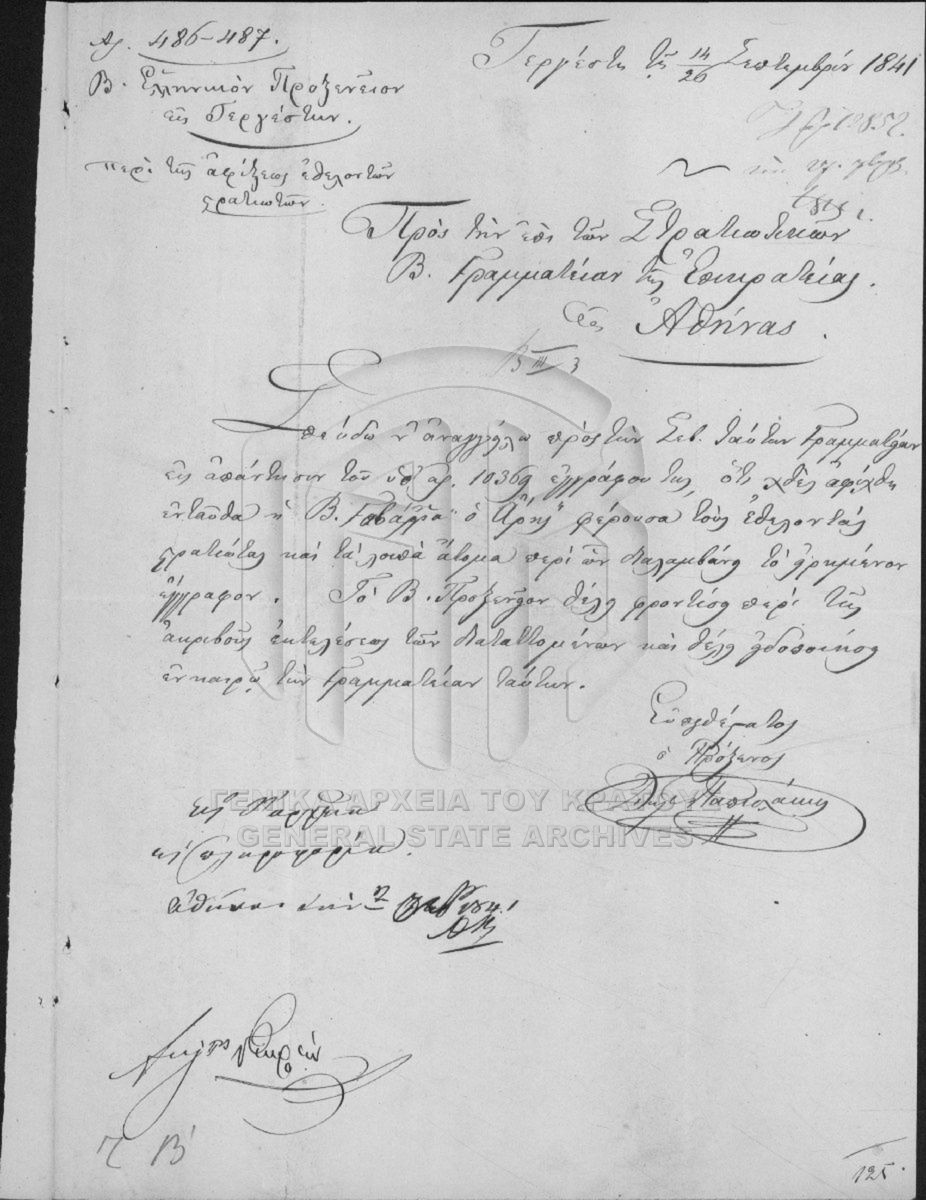 Αρ. 486-487.
Β. Ἑλληνικὸν Προξενεῖον
εἰς Τεργέστην.
Περὶ τῆς ἀφίξεως ἐθελοντῶν
στρατιωτῶν.
Τεργέστη τῇ 14/26 Σεπτεμβρίου 1841
Πρὸς τὴν ἐπὶ τῶν Στρατιωτικῶν
Β. Γραμματείαν τῆς Ἐπικρατείας.
Εἰς Ἀθήνας.
Β III 3
Σπεύδω ν' ἀναγγείλω πρὸς τὴν Σεβ. ταύτην Γραμματείαν
εἰς ἀπάντησιν τοῦ ὑπ' αρ. 10369 ἐγγράφου της, ὅτι χθὲς ἀφίχθη
ἐνταῦθα ἡ Β. Γαβάρρα "ὁ Ἄρης" φέρουσα τοὺς ἐθελοντὰς
στρατιώτας καὶ τὰ λοιπὰ ἄτομα περὶ ὧν διαλαμβάνει τὸ εἰρημένον
ἔγγραφον. Τὸ Β. Προξενεῖον θέλει φροντίσει περὶ τῆς
ἀκριβοῦς ἐκτελέσεως τῶν διαταττομένων καὶ θέλει εἰδοποιήσει
ἐν καιρῷ τὴν Γραμματείαν ταύτην.
Εὐπειθέστατος
ὁ Πρόξενος
εἰς πληροφορίαν.
Ἀθήναι 1841
Γ Β
125.
ΓΕΝΙΚΑ ΑΡΧΕΙΑ ΤΟΥ ΚΡΑΤΟΥΣ
GENERAL STATE ARCHIVES